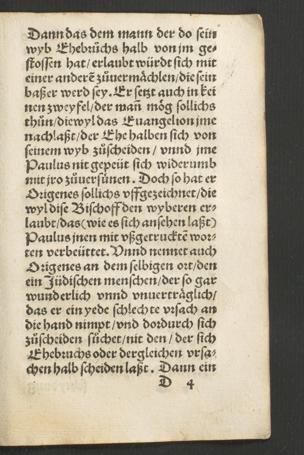 Dann das dem mann der do sein
wyb Ehebrüchs halb von jm ge⸗
stossen hat/erlaubt würdt sich mit
einer anderẽ zůuermächlen/die sein
baßer werd sey. Er setzt auch in kei
nen zweyfel/der mañ mög sollichs
thůn/diewyl das Euangelion jme
nachlaßt/der Ehe halben sich von
seinem wyb zůscheiden/vnnd jme
Paulus nit gepeüt sich widerumb
mit jro zůuersünen. Doch so hat er
Origenes sollichs vffgezeichnet/die
wyl dise Bischoff den wyberen er⸗
laubt/das(wie es sich ansehen laßt)
Paulus jnen mit vßgetrucktẽ wor⸗
ten verbeüttet. Vnnd nennet auch
Origenes an dem selbigen ort/den
ein Jüdischen menschen/der so gar
wunderlich vnnd vnuerträglich/
das er ein yede schlechte vrsach an
die hand nimpt/vnd dordurch sich
zůscheiden sůchet/nit den/der sich
Ehebruchs oder dergleichen vrsa⸗
chen halb scheiden laßt. Dann ein
D 4